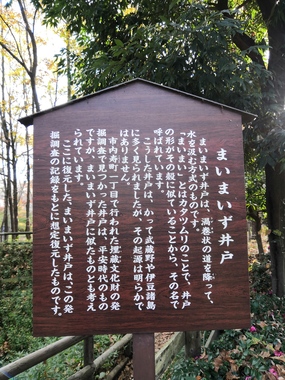 まいまいず井戸
まいまいず井戸は、渦巻状の道を降って、
水を汲む方式のものです。
「まいまい」とはカタツムリのことで、井戸
の形がその殻に似ていることから、その名で
呼ばれています。
こうした井戸は、かつて武蔵野や伊豆諸島
に多く見られましたが、その起源は明らかで
はありません。
市内寿町一丁目で行われた埋蔵文化財の発
掘調査で見つかった井戸は、平安時代のもの
ですが、まいまいず井戸に似たものとも考え
られています。
ここに復元した、まいまいず井戸は、この発
掘調査の記録をもとに想定復元したものです。